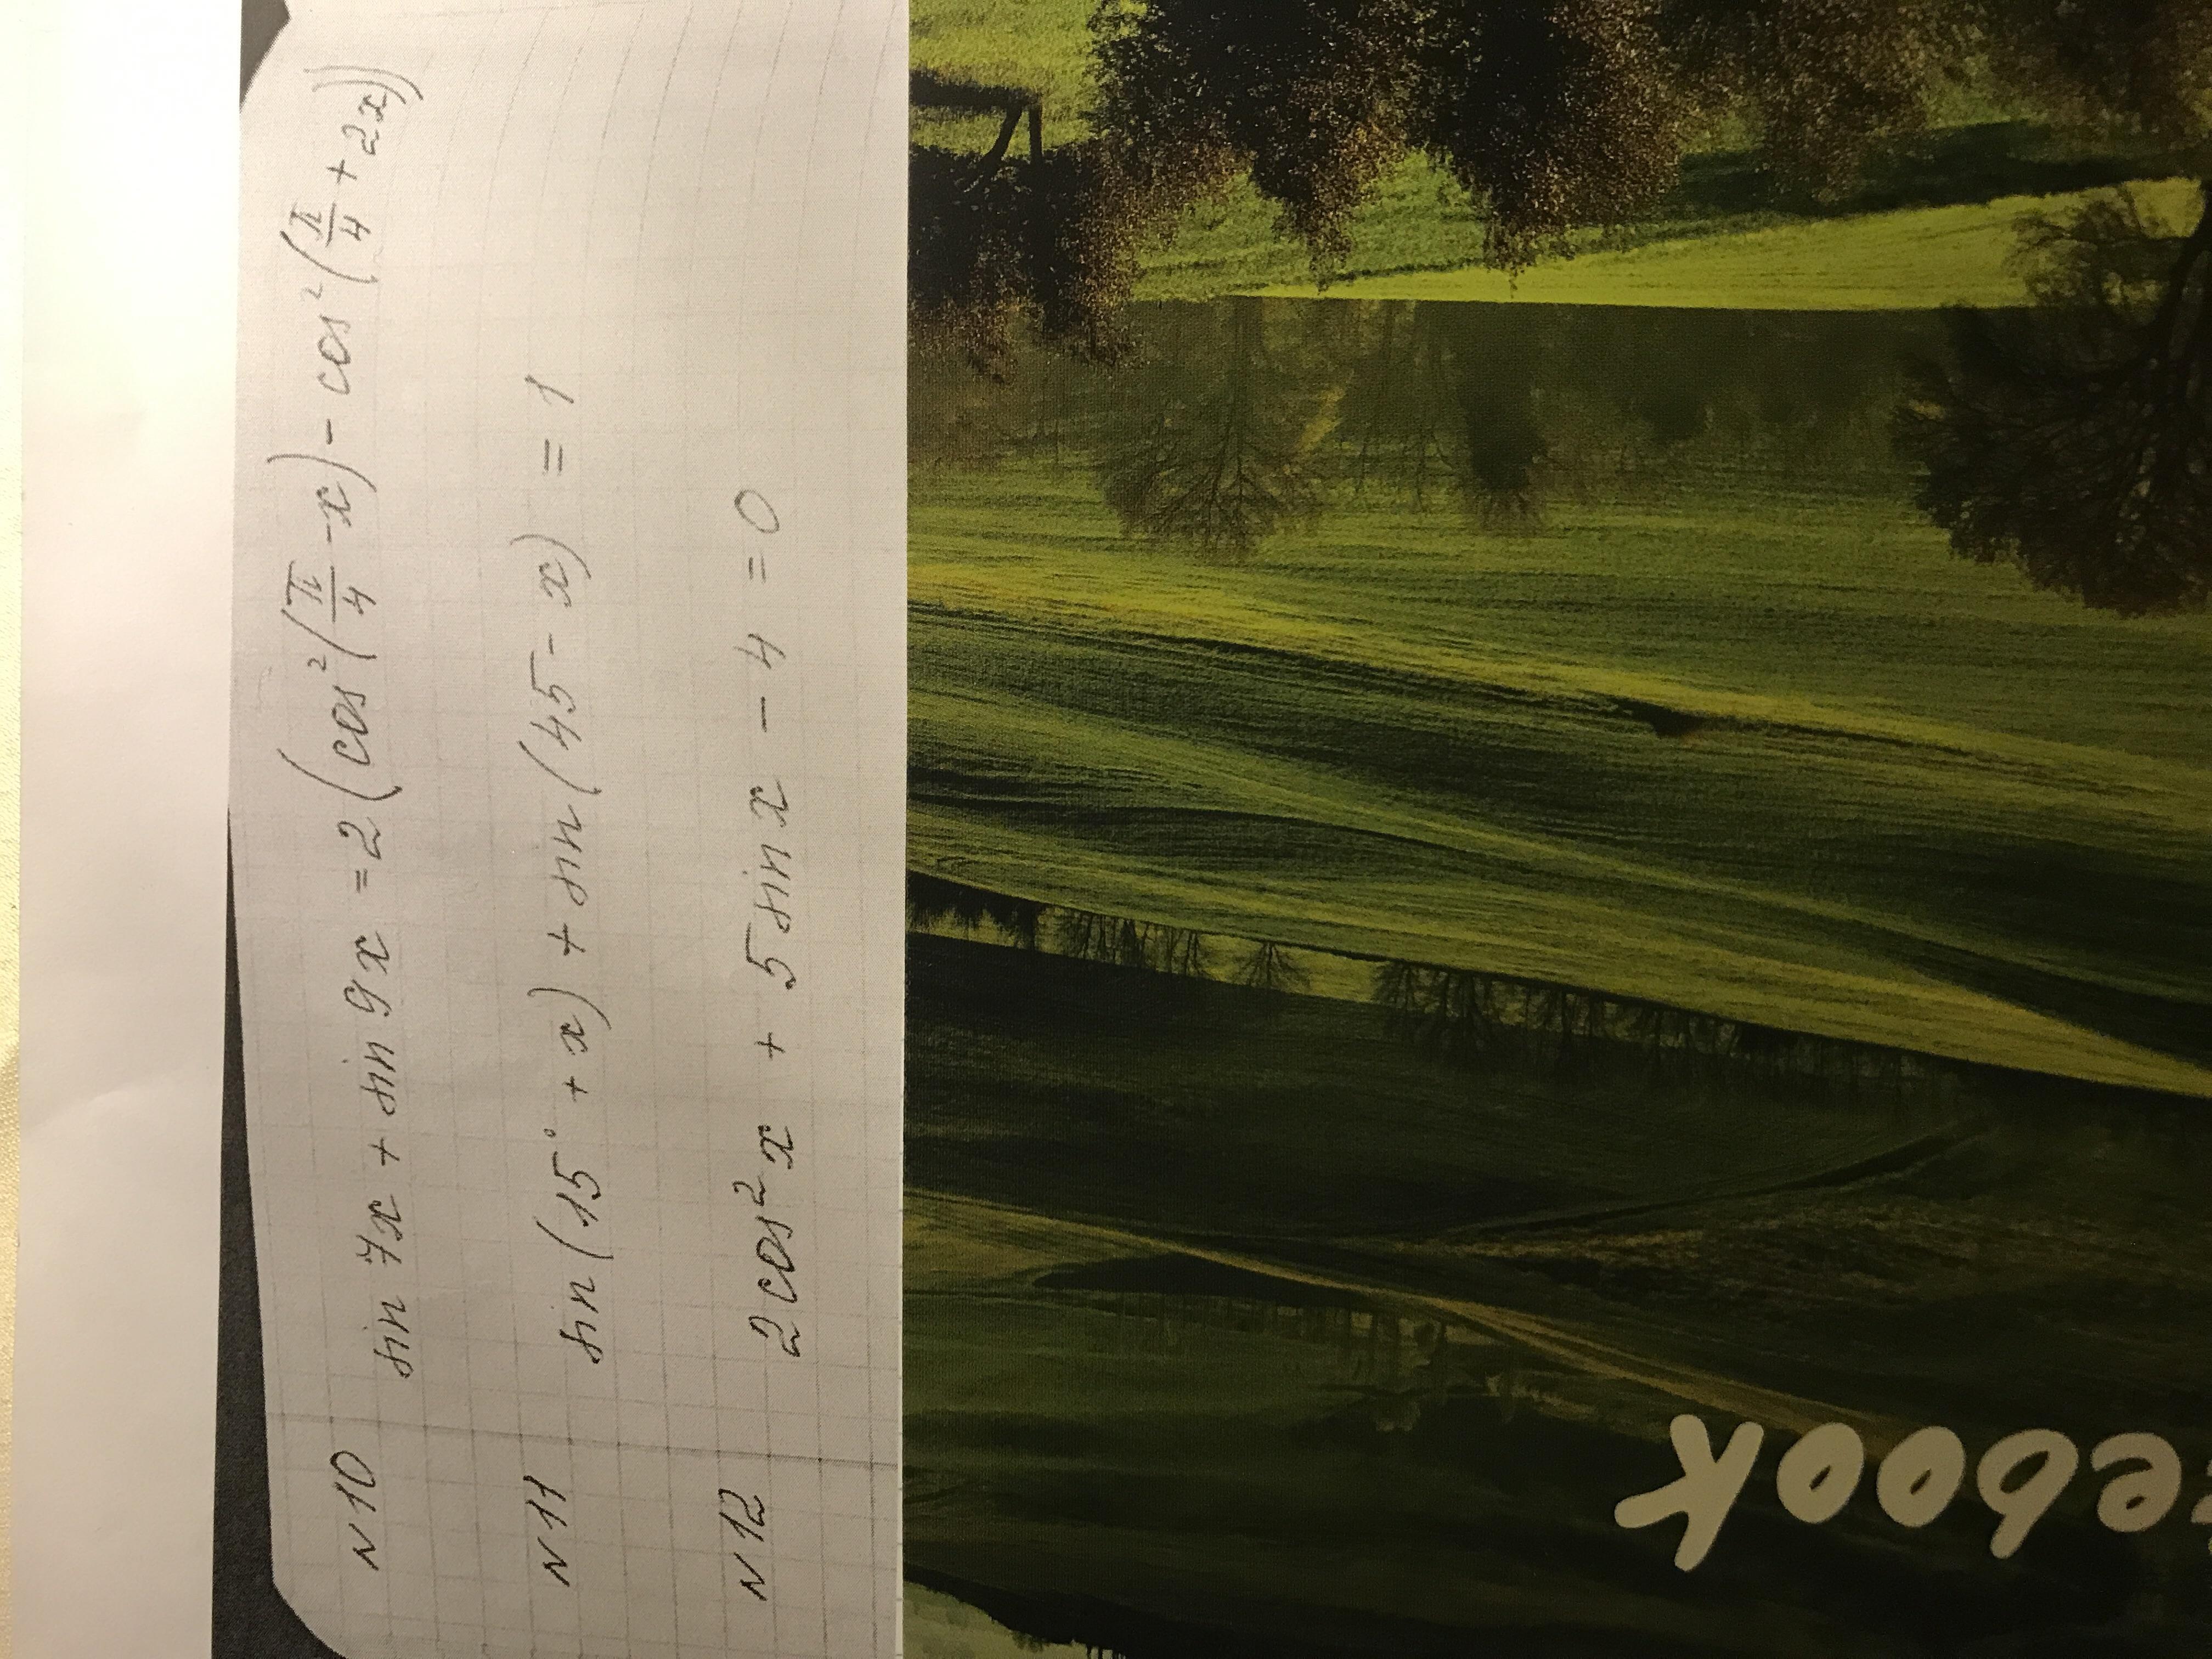 N10 sin 7x + sin 9x = 2(cos²(π/4 - x) - cos²(π/4 + 2x))
N11 sin(15° + x) + sin(45 - x) = 1
N12 2cos²x + 5sin x - 4 = 0
ebook